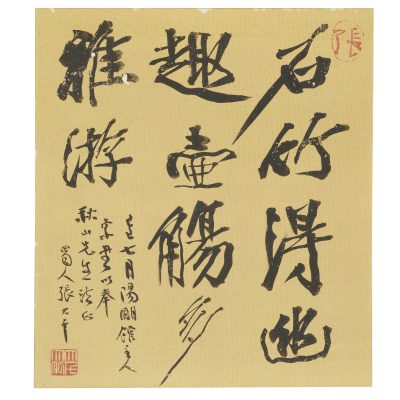 石竹得幽
趣壺觴多
雅游
七月陽明館主人
索書以奉
秋山先生法正
蜀人張大千